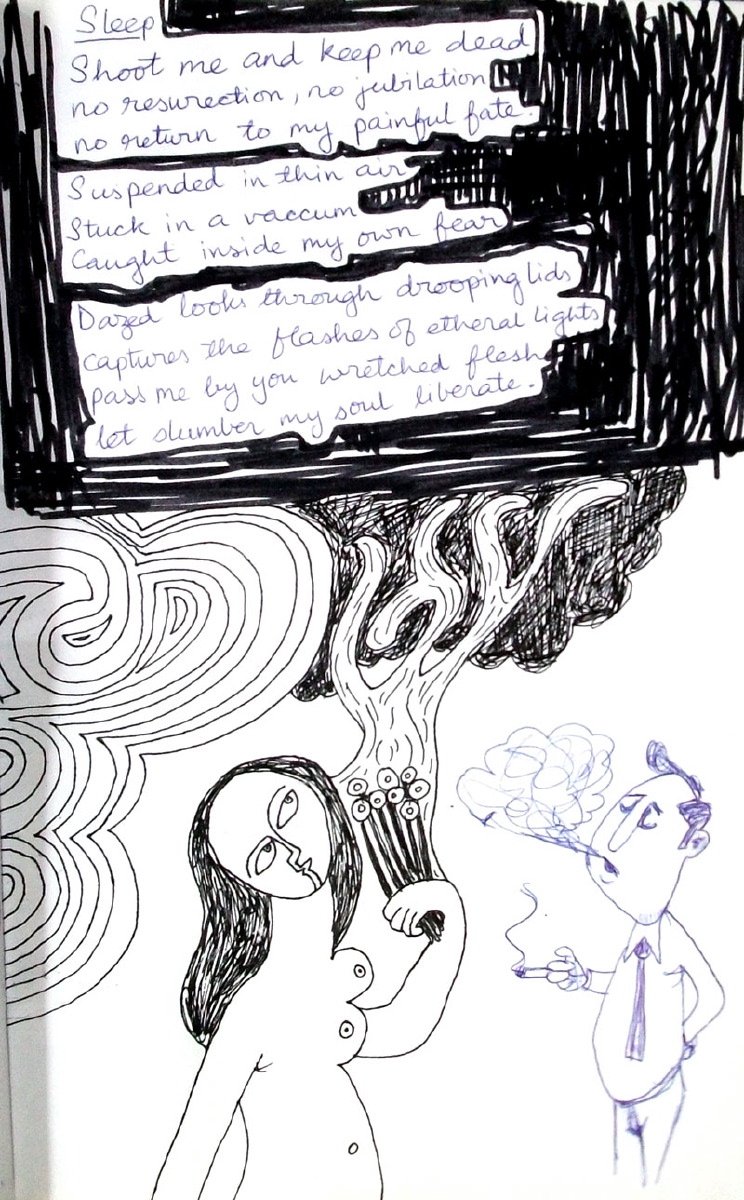 Sleep
Shoot me and keep me dead
no resurection, no jubilation
no return to my painful fate.
Suspended in thin air
Stuck in a vaccum
Caught inside my own fear
Dazed looks through drooping lids
captures the flashes of etheral lights
pass me by you wretched flesh
let slumber my soul liberate.